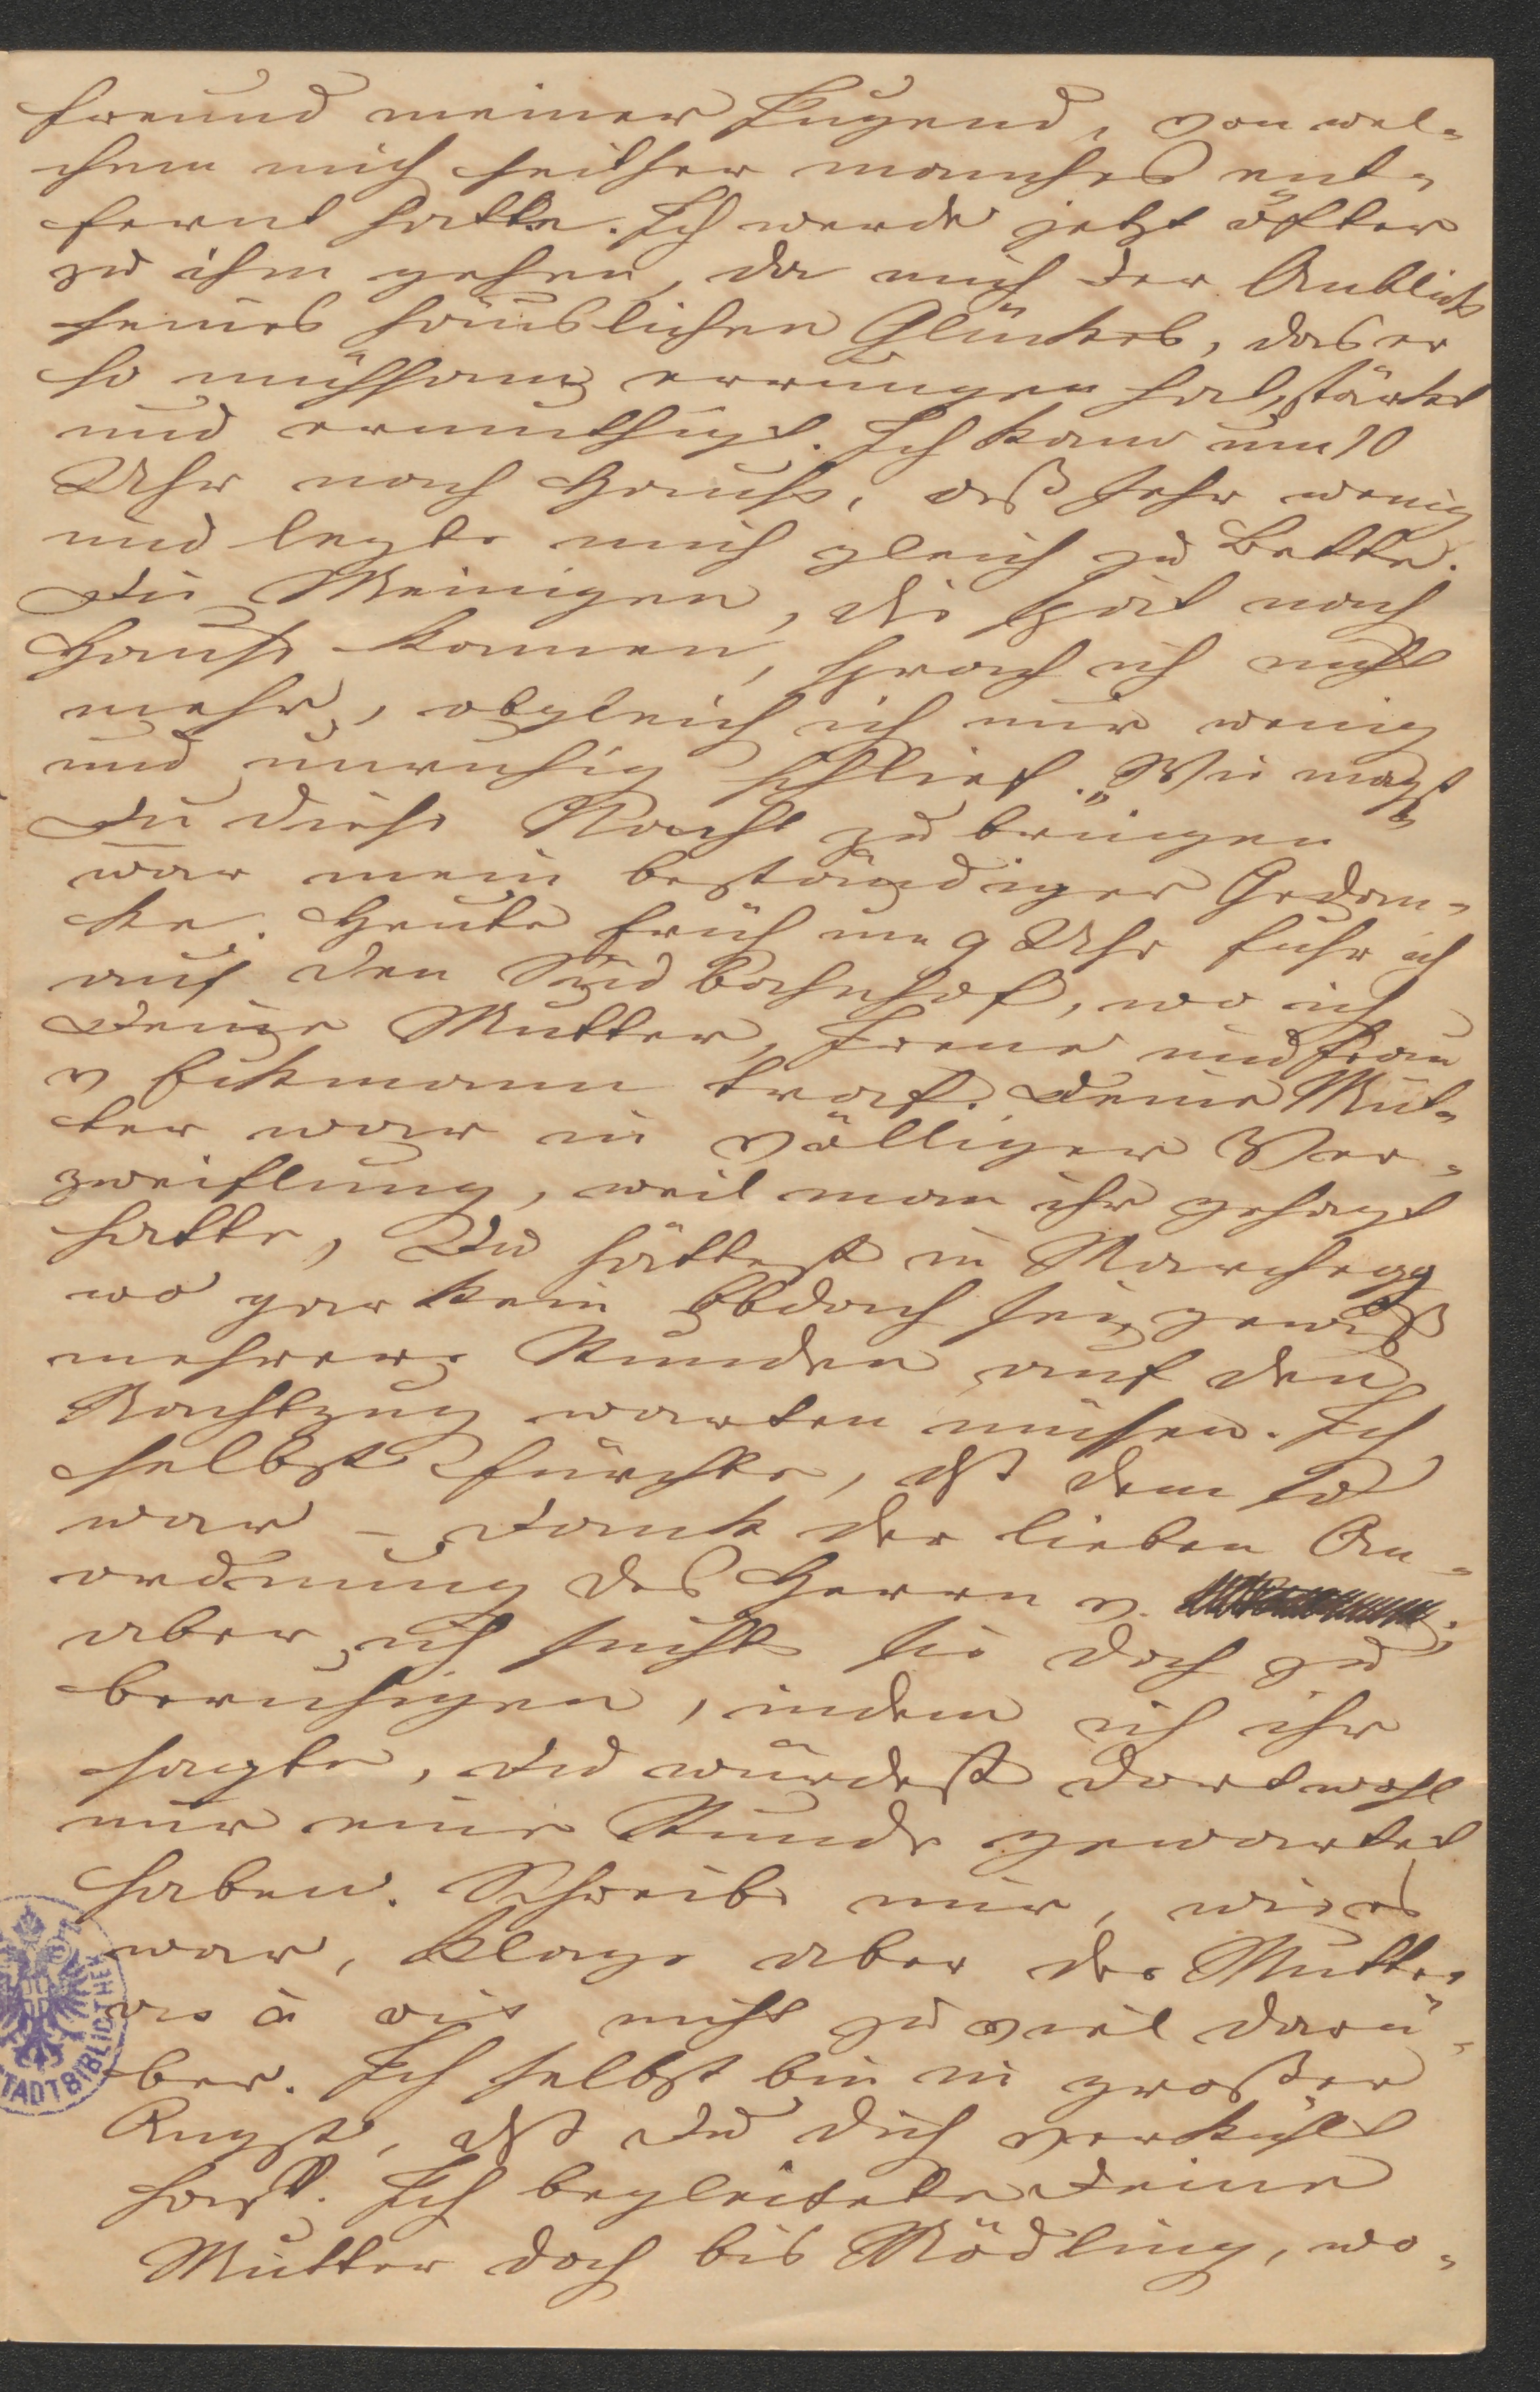 Freund meiner Jugend, von wel-
chem mich seither manches ent-
fernt hatte. Ich werde jetzt öfter
zu ihm gehen, da mich der Anblick
seines häuslichen Glückes, das er
so mühsam errungen hat, stärkt
und ermuthigt. Ich kam um 10
Uhr nach Hause, aß sehr wenig
und legte mich gleich zu Bette.
Die Meinigen, die spät nach
Hause kamen, sprach ich nicht
mehr, obgleich ich nur wenig
und unruhig schlief. „Wie magst
Du diese Nacht zubringen“
war mein beständiger Gedan-
ke. Heute früh um 9 Uhr fuhr ich
auf den Südbahnhof, wo ich
Deine Mutter, Irene und Frau
v Eickmann traf. Deine Mut-
ter war in völliger Ver-
zweiflung, weil man ihr gesagt
hatte, Du hättest in Marchegg
wo gar kein Obdach sei, gewiß
mehrere Stunden auf den
Nachtzug warten müssen. Ich
selbst fürchte, dß dem so
war – Dank der lieben An-
ordnung des Herrn v.
aber ich suchte sie doch zu
beruhigen, indem ich ihr
sagte, Du würdest dort wohl
nur eine Stunde gewartet
haben. Schreibe mir, wie es
war, klage aber der Mutter
vis à vis nicht zu viel darü-
ber. Ich selbst bin in großer
Angst, dß Du Dich verkühlt
hast. Ich begleitete Deine
Mutter doch bis Mödling, wo-
STADTBIBLIOTHEK